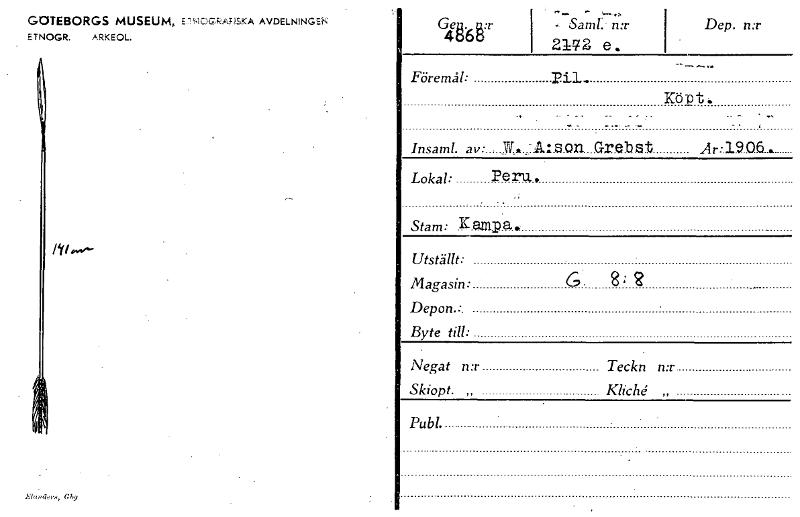 GÖTEBORGS MUSEUM, ETNOGRAFISKA AVDELNINGEN
ETNOGR. ARKEOL.
141 cm
Elanders, Gbg
Gen. n:r
4868
Saml. n:r
2172 e.
Dep. n:r
Föremål: Pil.
Köpt.
Insaml. av: W. A:son Grebst År: 1906.
Lokal: Peru.
Stam: Kampa.
Utställt:
Magasin: G 8:8
Depon.:
Byte till:
Negat n:r Teckn n:r
Skiopt. „ Kliché „
Publ.